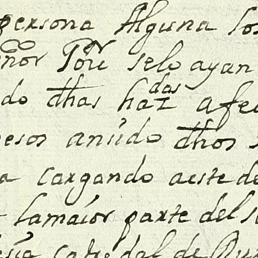 persona Alguna los
señor Tori selo ayan
do dhas haz.das afec
pesos ansido dhos s
a cargando aeste de
lamaior parte del s
esia catredal de Dur